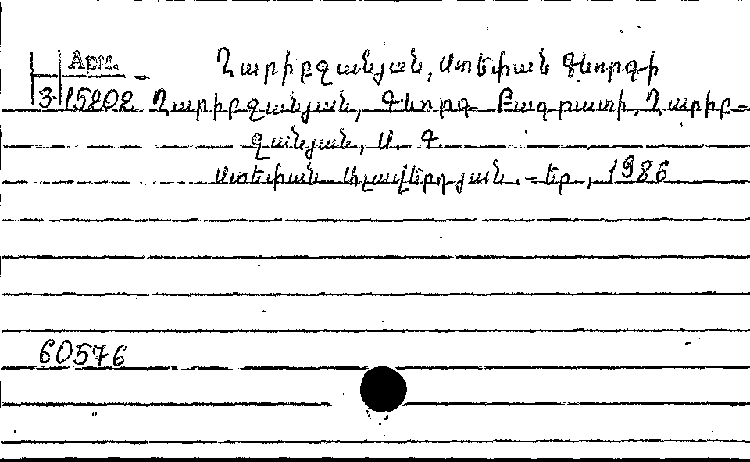 Арм.
Ղարիբջանյան, Ստեփան Գևորգի
3 15202 Ղարիբջանյան, Գևորգ Բագրատի, Ղարիբ-
ջանյան, Ս. Գ.
Ստեփան Ալավերդյան. – Եր., 1986
60576